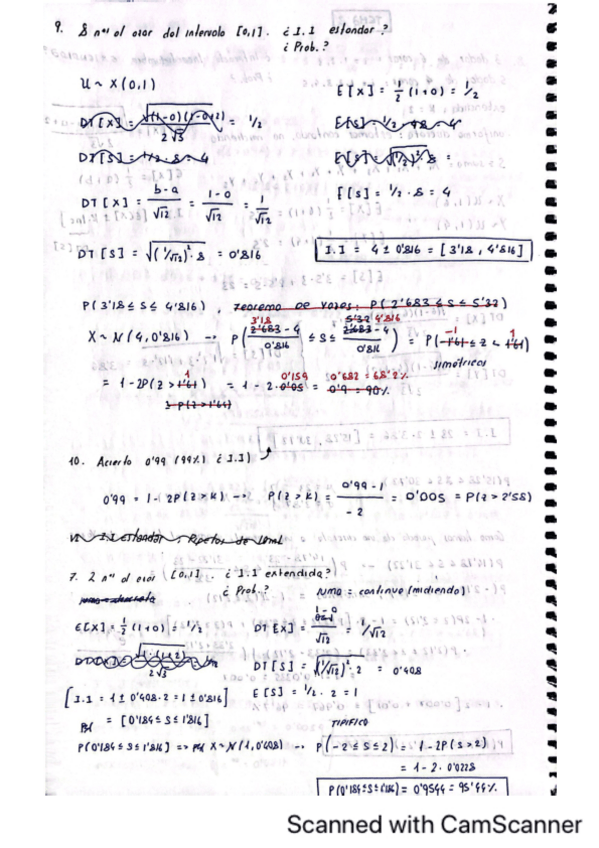 2
9. 8 nos al azar del intervalo [0,1]. ¿I.I estandar?
¿Prob.?
U ~ X(0,1)
E[X] = 1/2 (1+0) = 1/2
DT[X] = √((1-0)(1-0+2)) / 2√3 = 1/2
E[S] = 1/2 · 8 = 4
DT[S] = 1/2 · 8 = 4
DT[X] = b-a/√12 = 1-0/√12 = 1/√12
E[S] = 1/2 · 8 = 4
DT[S] = √((1/√12)² · 8) = 0'816
I.I = 4 ± 0'816 = [3'18, 4'816]
P(3'18 ≤ S ≤ 4'816), Teorema de P(2'683 ≤ S ≤ 5'32)
3'18 5'32 4'816
X ~ N(4, 0'816) → P(2'683-4/0'816 ≤ S ≤ 2'683-4/0'816) = P(-1'61 ≤ z < 1'61)
-1 1
simétricos
= 1-2P(z > 1'61) = 1-2·0'05 = 0'9 = 90%
1 0'159 0'682 = 68'2%
1-P(z>1'61)
10. Acierto 0'99 (99%) ¿I.I)
0'99 = 1-2P(z>K) → P(z>K) = 0'99-1/-2 = 0'005 = P(z>2'58)
I.I estandar
7. 2 nos al azar [0,1]. ¿I.I extendida?
¿Prob.? suma = continuo (midiendo)
E[X] = 1/2 (1+0) = 1/2 DT[X] = 1-0/√12 = 1/√12
2√3
DT[S] = √((1/√12)² · 2) = 0'408
[I.I = 1 ± 0'408·2 = 1 ± 0'816] E[S] = 1/2 · 2 = 1
= [0'184 ≤ S ≤ 1'816]
TIPIFICO
P(0'184 ≤ S ≤ 1'816) => X ~ N(1, 0'408) → P(-2 ≤ S ≤ 2) = 1-2P(S>2)
= 1-2·0'0228
P(0'184 ≤ S ≤ 1'816) = 0'9544 = 95'44%
Scanned with CamScanner